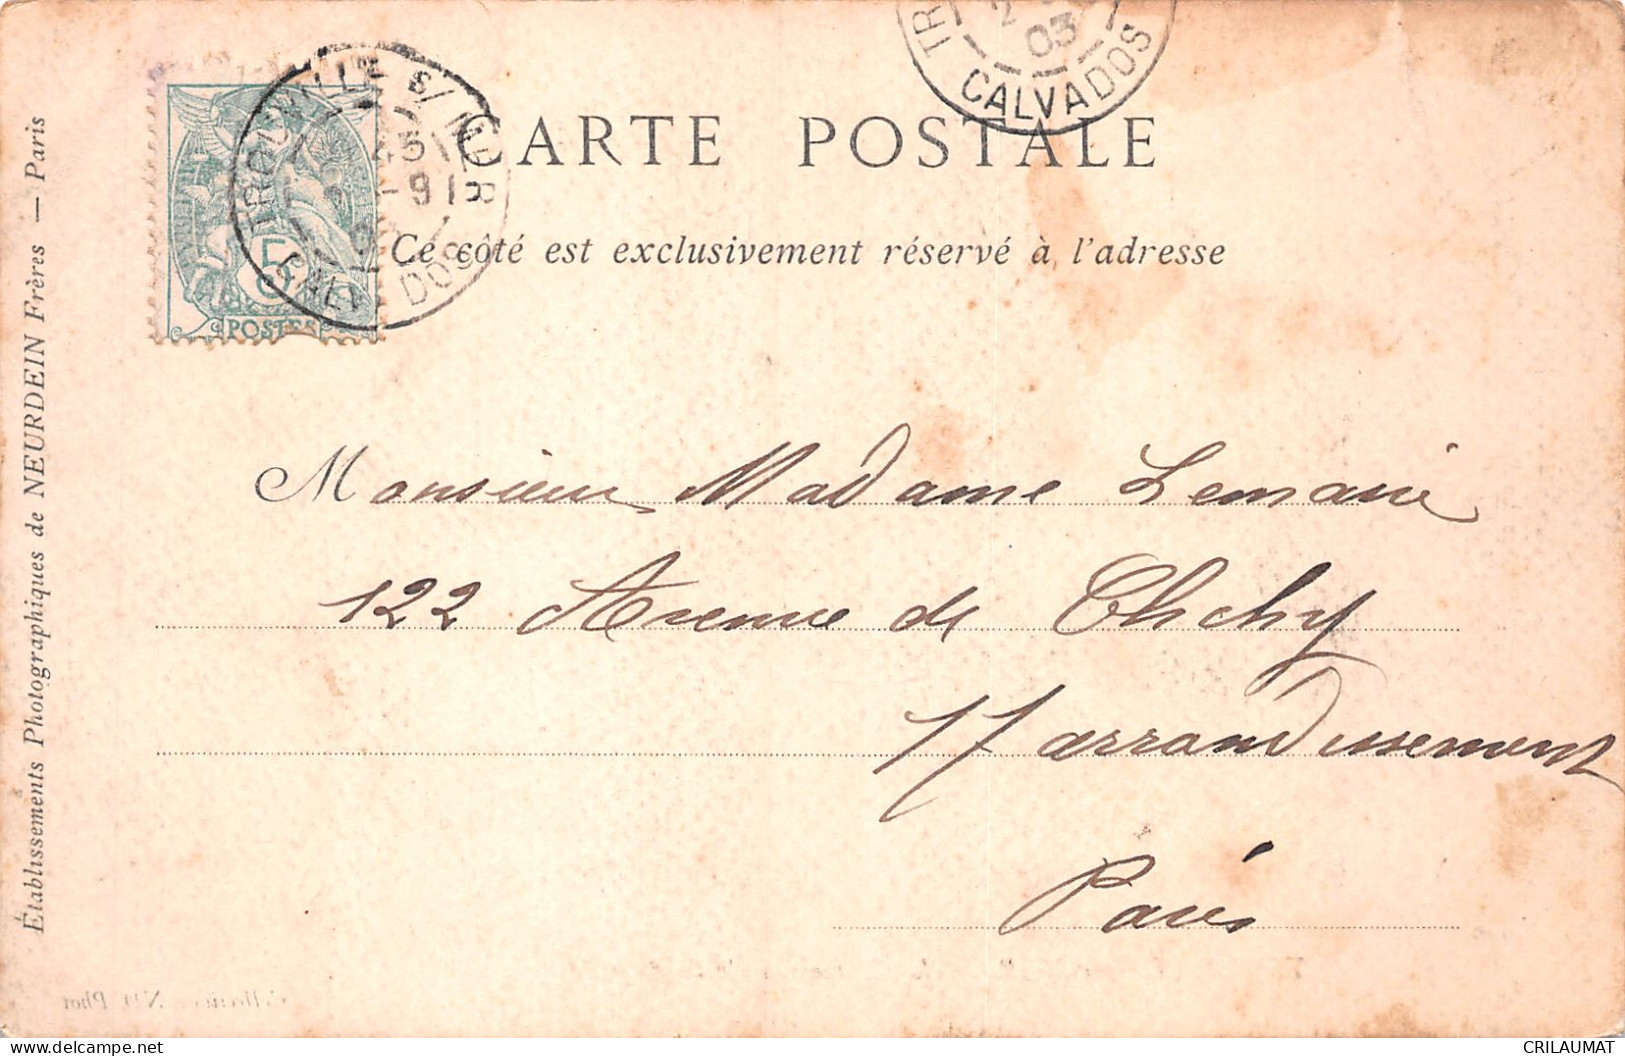 TROUVILLE S/ MER
CALVADOS
5
POSTES
TR
2
03
CALVADOS
CARTE POSTALE
Ce côté est exclusivement réservé à l'adresse
Établissements Photographiques de NEURDEIN Frères — Paris
Monsieur Madame Lemaire
122 Avenue de Clichy
17 arrondissement
Paris
CRILAUMAT